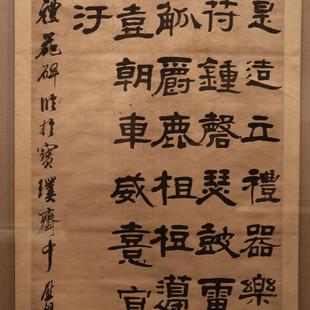 是造立禮器樂
苻鍾磬瑟鼓雷
觚爵鹿柤梪籩
壺朝車威熹宣
汙
碑臨於寶璞齋中